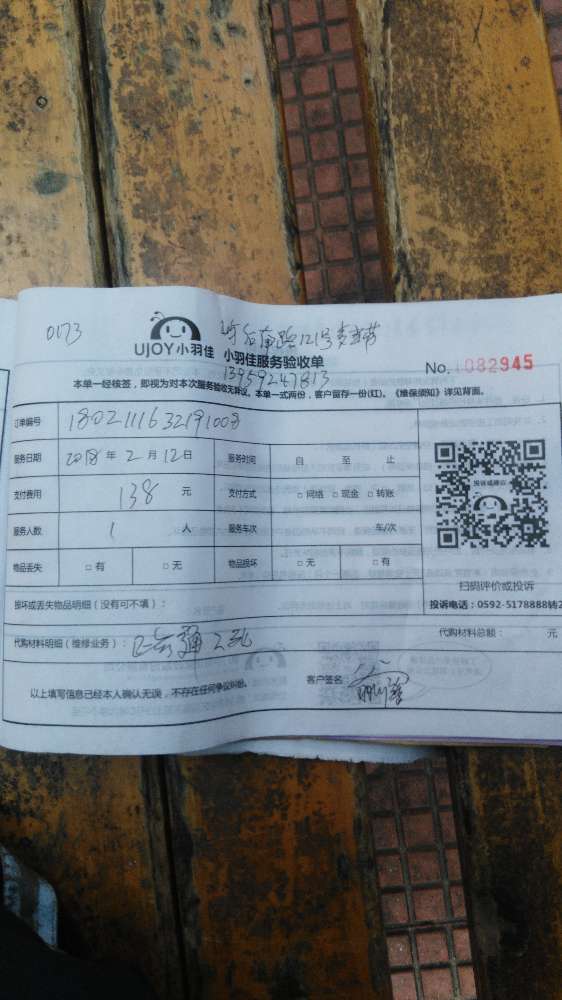 0173
UJOY小羽佳 小羽佳服务验收单
13959247813
No. 1082945
本单一经核签，即视为对本次服务验收无异议。本单一式两份，客户留存一份(红)。《维保须知》详见背面。
订单编号 1802111632191008
服务日期 2018 年 2 月 12 日 服务时间 自 至 止
支付费用 138 元 支付方式 □网络 □现金 □转账
服务人数 1 人 服务车次 车/次
物品丢失 □有 □无 物品损坏 □无 □有
投诉或建议
扫码评价或投诉
投诉电话：0592-5178888转2
损坏或丢失物品明细（没有可不填）：
代购材料明细（维修业务）： 代购材料总额： 元
以上填写信息已经本人确认无误，不存在任何争议纠纷。 客户签名：